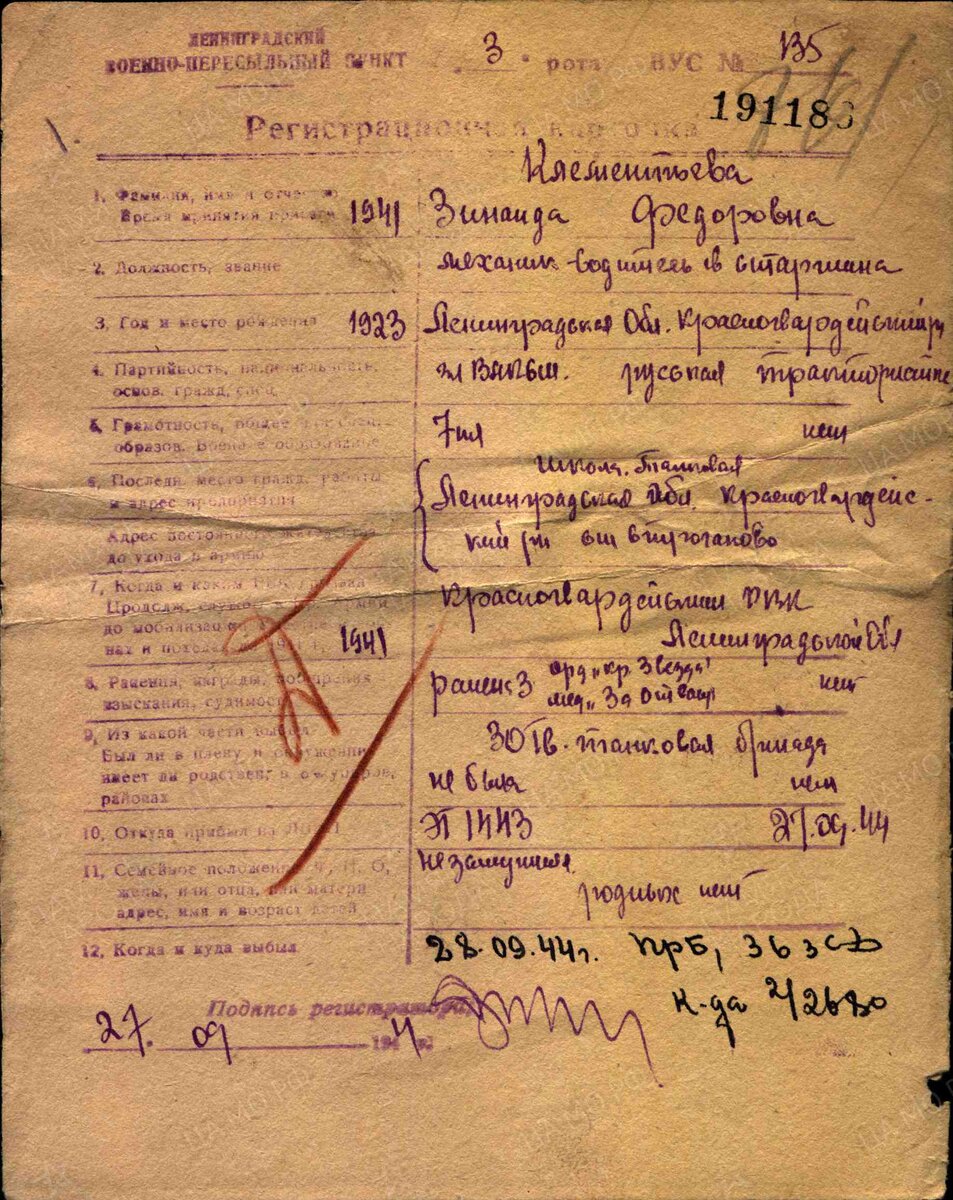 ЛЕНИНГРАДСКИЙ
ВОЕННО-ПЕРЕСЫЛЬНЫЙ ПУНКТ
3 рота ВУС № 135
191186
Регистрационная карточка
Клементьева
1. Фамилия, имя и отчество
Время принятия присяги 1941 Зинаида Федоровна
2. Должность, звание механик-водитель старшина
3. Год и место рождения 1923 Ленинградская Обл. Красногвардейский р
4. Партийность, национальность, чл ВЛКСМ. русская
основ. гражд. спец.
5. Грамотность, общее 7 кл нет
образов. Военное образование
Школа. Танковая
6. Последн. место гражд. работы Ленинградская Обл. Красногвардейс-
и адрес предприятия
Адрес постоянного кий рн
до ухода в армию
7. Когда и каким РВК призван Красногвардейским РВК
Продолж. службы
до мобилизац
1941 Ленинградской Обл
8. Ранения, награды, поощрения ранен. 3 орд „кр Звезда" нет
взыскания, судимость мед „За Отвагу"
9. Из какой части выбыл 30 гв. танковая бригада
Был ли в плену и окружении не был нет
имеет ли родствен. в оккупиров.
районах
10. Откуда прибыл на ЭГ 1443 27.09.44
11. Семейное положение, Ф, И, О, незамужняя
жены, или отца, или матери родных нет
адрес, имя и возраст детей
12. Когда и куда выбыл 28.09.44 г. 36 зсд
Подпись регистратора
к-да 2/2680
27. 09 1944 г.